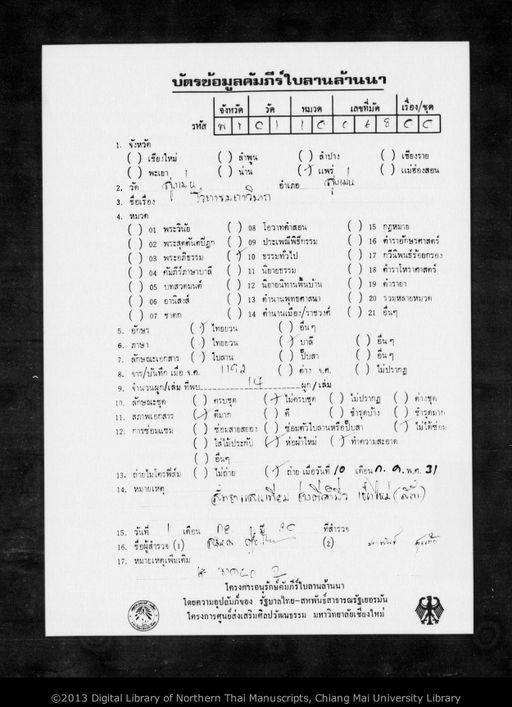 บัตรข้อมูลคัมภีร์ใบลานล้านนา
จังหวัด วัด หมวด เลขที่มัด เรื่อง/ชุด
รหัส พ ร 0 1 1 0
1. จังหวัด
( ) เชียงใหม่ ( ) ลำพูน ( ) ลำปาง ( ) เชียงราย
( ) พะเยา ( ) น่าน (✓) แพร่ ( ) แม่ฮ่องสอน
2. วัด สูงเม่น อำเภอ สูงเม่น
3. ชื่อเรื่อง
4. หมวด
( ) 01 พระวินัย ( ) 08 โอวาทคำสอน ( ) 15 กฎหมาย
( ) 02 พระสุตตันตปิฎก ( ) 09 ประเพณีพิธีกรรม ( ) 16 ตำราอักษรศาสตร์
( ) 03 พระอภิธรรม (✓) 10 ธรรมทั่วไป ( ) 17 กวีนิพนธ์ร้อยกรอง
( ) 04 คัมภีร์ภาษาบาลี ( ) 11 นิยายธรรม ( ) 18 ตำราโหราศาสตร์
( ) 05 บทสวดมนต์ ( ) 12 นิยายนิทานพื้นบ้าน ( ) 19 ตำรายา
( ) 06 อานิสงส์ ( ) 13 ตำนานพุทธศาสนา ( ) 20 รวมหลายหมวด
( ) 07 ชาดก ( ) 14 ตำนานเมือง/ราชวงศ์ ( ) 21 อื่นๆ
5. อักษร (✓) ไทยยวน ( ) อื่นๆ
6. ภาษา (✓) ไทยยวน (✓) บาลี ( ) อื่นๆ
7. ลักษณะเอกสาร (✓) ใบลาน ( ) ปั๊บสา ( ) อื่นๆ
8. จาร/บันทึก เมื่อ จ.ศ. 1192 ( ) ต่าง จ.ศ. ( ) ไม่ปรากฏ
9. จำนวนผูก/เล่ม ที่พบ 14 ผูก/เล่ม
10. ลักษณะชุด ( ) ครบชุด (✓) ไม่ครบชุด ( ) ไม่ปรากฏ ( ) ต่างชุด
11. สภาพเอกสาร (✓) ดีมาก ( ) ดี ( ) ชำรุดบ้าง ( ) ชำรุดมาก
12. การซ่อมแซม ( ) ซ่อมสายสยอง ( ) ซ่อมตัวใบลานหรือปั๊บสา (✓) ไม่ได้ซ่อม
( ) ใส่ไม้ประกับ (✓) ห่อผ้าใหม่ (✓) ทำความสะอาด
( ) อื่นๆ
13. ถ่ายไมโครฟิล์ม ( ) ไม่ถ่าย (✓) ถ่าย เมื่อวันที่ 10 เดือน ก.ค. พ.ศ. 31
14. หมายเหตุ
15. วันที่ 1 เดือน ปี ที่สำรวจ
16. ชื่อผู้สำรวจ (1) (2)
17. หมายเหตุเพิ่มเติม
โครงการอนุรักษ์คัมภีร์ใบลานล้านนา
โดยความอุปถัมภ์ของ รัฐบาลไทย-สหพันธ์สาธารณรัฐเยอรมัน
โครงการศูนย์ส่งเสริมศิลปวัฒนธรรม มหาวิทยาลัยเชียงใหม่
©2013 Digital Library of Northern Thai Manuscripts, Chiang Mai University Library